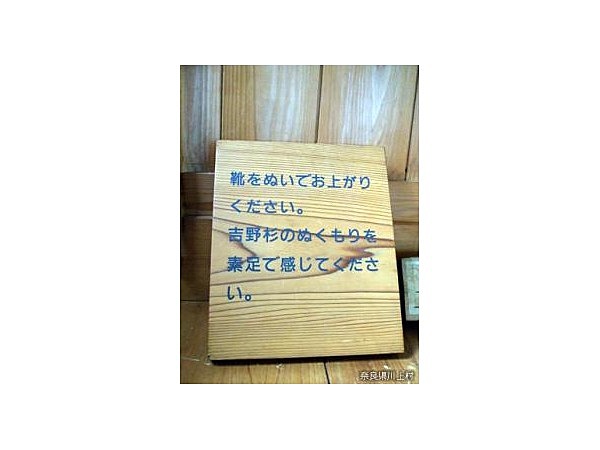 靴をぬいでお上がり
ください。
吉野杉のぬくもりを
素足で感じてくださ
い。
奈良県川上村